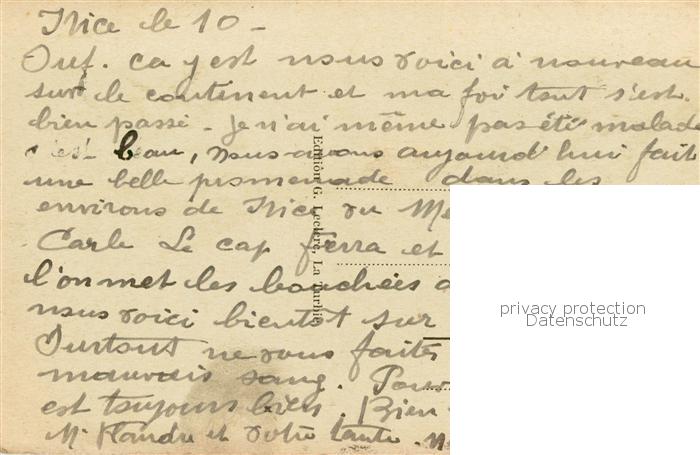 Nice le 10 -
Ouf. ca y est nous voici à nouveau
sur le continent et ma foi tout s'est
bien passé - Je n'ai même pas été malade
c'est beau, nous avons aujourd'hui fait
une belle promenade dans les
environs de Nice vu M
Carle Le cap Ferra et
l'on met les bouchées d
nous voici bientôt sur
Surtout ne vous faites
mauvais sang. Pour
est toujours bien. Bien
M. et votre tante.
Edition G. Leclerc, La Turbie
privacy protection
Datenschutz